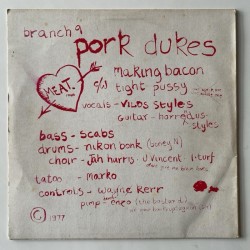 branch 9
pork dukes
making bacon
MEAT.
c/w tight pussy
vocals - vilos styles
guitar - horrendus styles
bass - scabs
drums - nikon bonk (boney k)
choir - jah harris j vincent l. turf
tatos - marko
controls - wayne kerr
pimp - eneo
© 1977